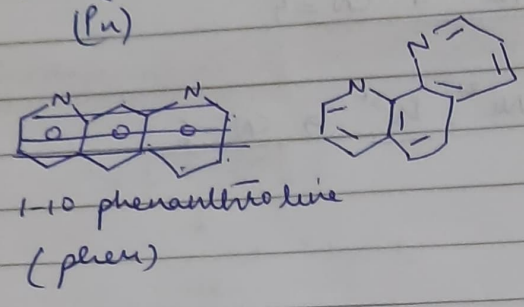 (Pn)
N
N
N
N
1-10 phenanthroline
(phen)